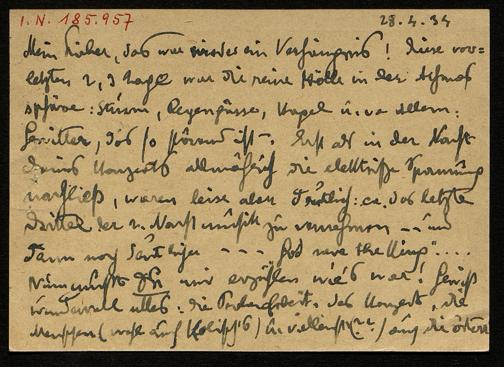 I.N. 185.957 28.4.34
Mein Lieber, das war wieder ein Verhängnis! Diese vor-
letzten 2, 3 Tage war die reine Hölle in der Atmos
sphäre: Sturm, Regengüsse, Hagel u. vor Allem:
Gewitter, das so störend ist –. Erst als in der Nacht
Deines Konzerts allmählich die elektrische Spannung
nachließ, waren leise aber deutlich: ca. das letzte
Drittel der 2. Nachtmusik zu vernehmen – – und
dann noch deutlicher – – – "God save the King"....
Nun müßt Ihr mir erzählen wie's war! Gewiß
wundervoll alles: die Probenarbeit, das Konzert, die
Menschen (wohl auch Kolisch's) vielleicht (??) auch die